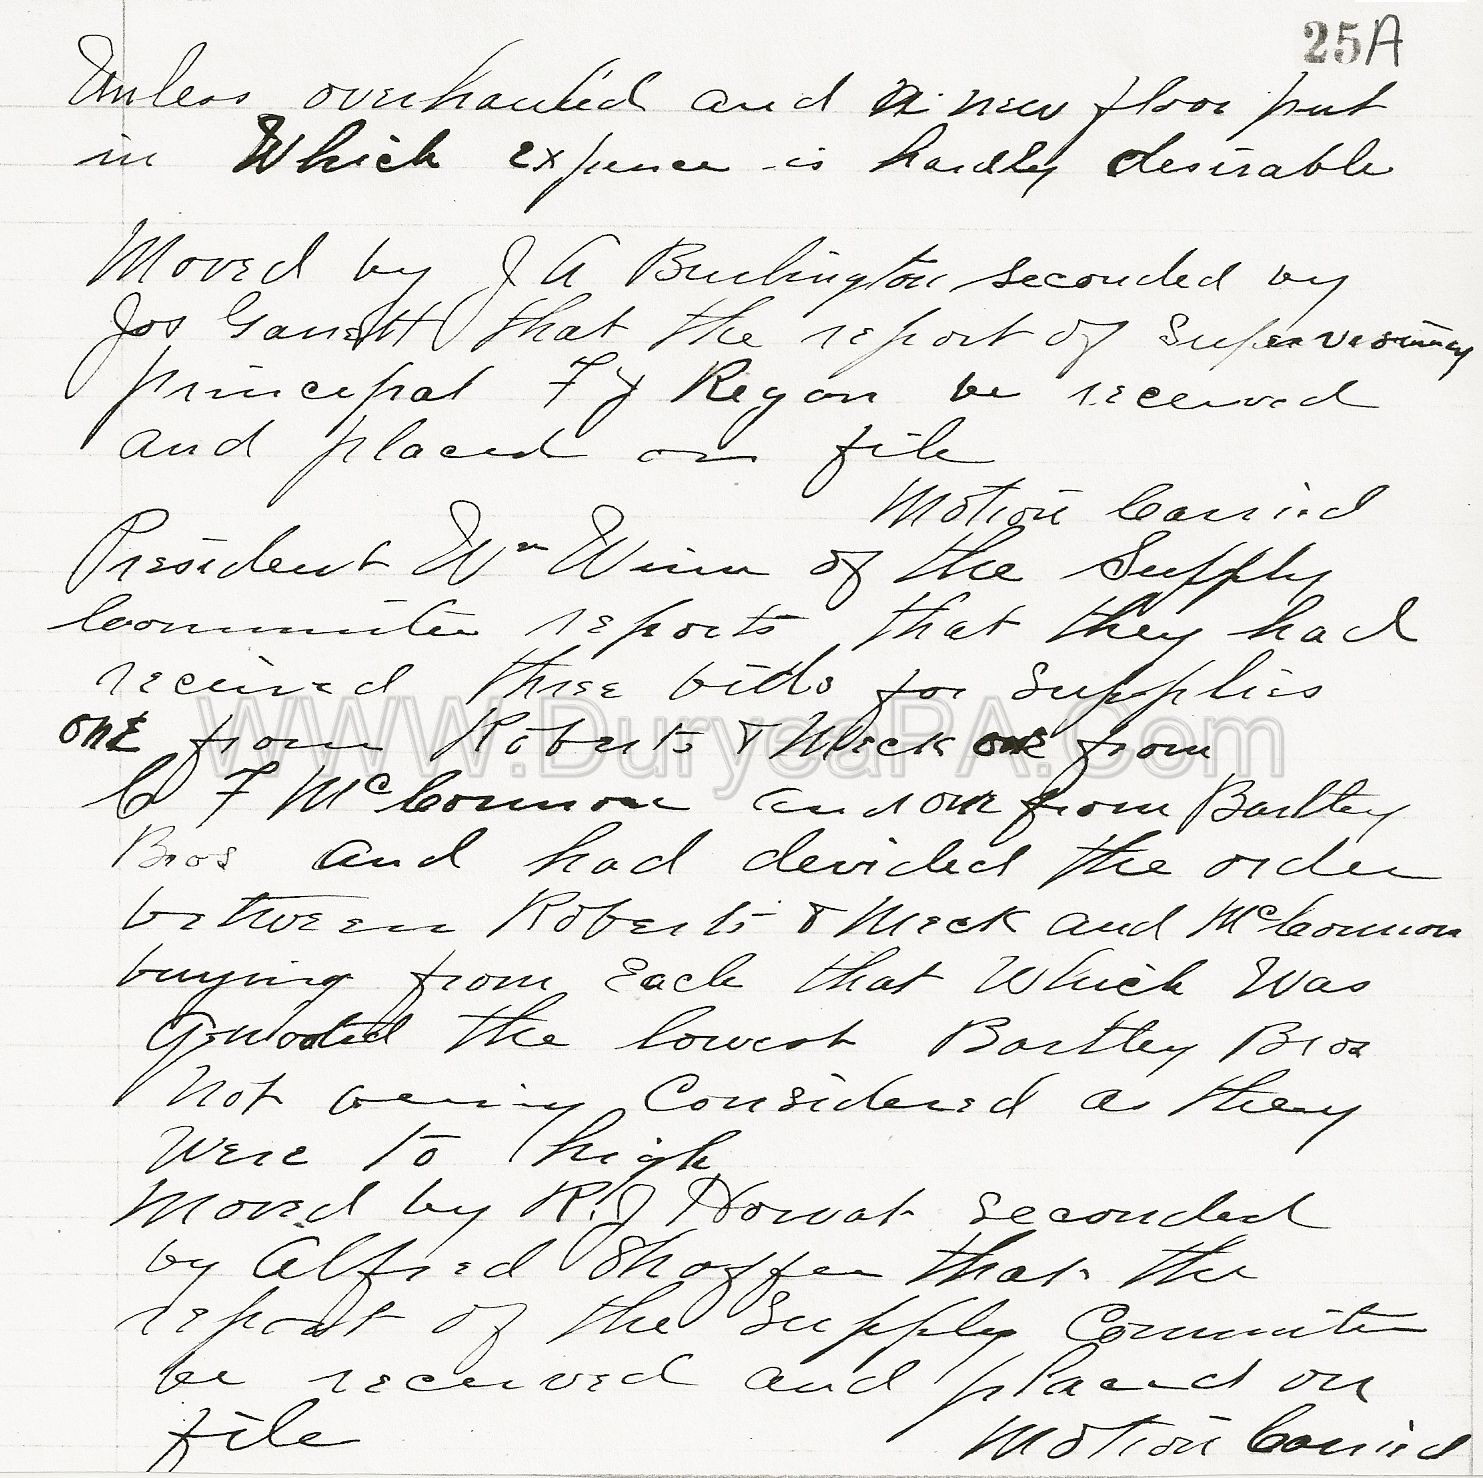 25A
Unless overhauled and a new floor put
in Which expence is hardly desirable
Moved by J A Burlington seconded by
Jos Garrett that the report of Supervising
principal F J Regan be received
and placed on file
Motion Carried
President Wm Winn of the Supply
Committee reports that they had
received three bids for supplies
one from Roberts & Meck one from
C F McConnon and one from Bartley
Bros and had devided the order
between Roberts & Meck and McConnon
buying from Each that Which Was
quoted the lowest Bartley Bros
Not being Considered as they
Were to high
Moved by R.J Howat seconded
by Alfred Shaffer that the
report of the Supply Committee
be received and placed on
file
Motion Carried
WWW.DuryeaPA.Com